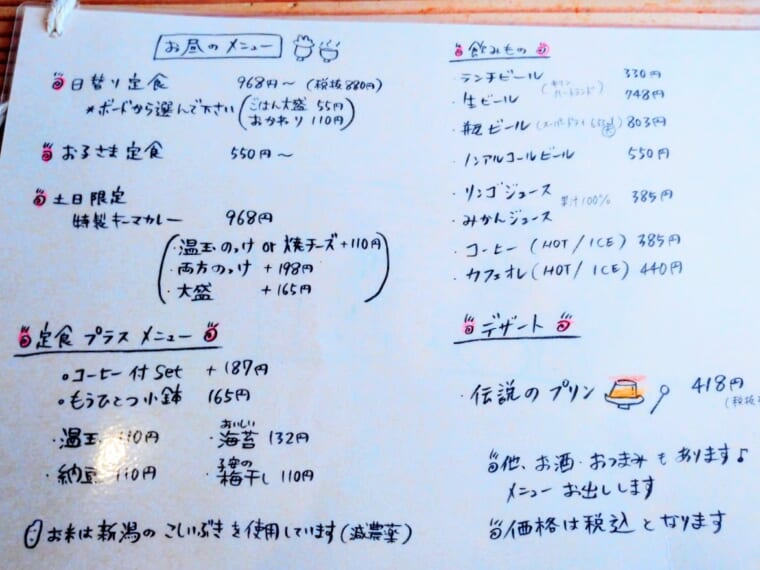 お昼のメニュー
日替り定食 968円〜 (税抜880円)
*ボードから選んで下さい (ごはん大盛 55円
おかわり 110円)
お子さま定食 550円〜
土日限定
特製キーマカレー 968円
(・温玉のっけ or 焼チーズ +110円
・両方のっけ +198円
・大盛 +165円)
定食 プラス メニュー
○コーヒー付Set +187円
○もうひとつ小鉢 165円
・温玉 110円
・おいしい海苔 132円
・納豆 110円
・梅干し 110円
お米は新潟のこしいぶきを使用しています(減農薬)
飲みもの
・ランチビール 330円
・生ビール (キリン ハートランド) 748円
・瓶ビール (スーパードライ) 803円
・ノンアルコールビール 550円
・リンゴジュース
果汁100% 385円
・みかんジュース
・コーヒー (HOT / ICE) 385円
・カフェオレ (HOT / ICE) 440円
デザート
・伝説のプリン 418円
(税抜
他、お酒・おつまみもあります♪
メニューお出しします
価格は税込となります